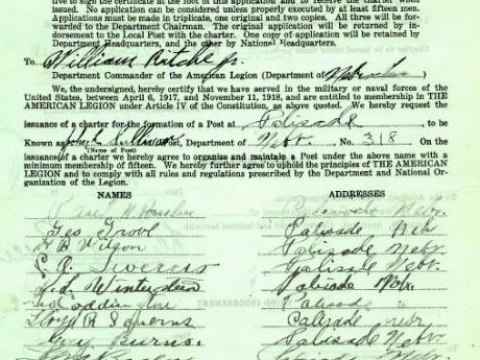 tive to sign the certificate at the foot of this application and to receive the charter when
issued. No application can be considered unless properly executed by at least fifteen men.
Applications must be made in triplicate, one original and two copies. All three will be for-
warded to the Department Chairman. The original application will be returned by in-
dorsement to the Local Post with the charter. One copy of application will be retained by
Department Headquarters, and the other by National Headquarters.
To William Ritchie Jr.
Department Commander of the American Legion (Department of Nebraska)
We, the undersigned, hereby certify that we have served in the military or naval forces of the
United States, between April 6, 1917, and November 11, 1918, and are entitled to membership in THE
AMERICAN LEGION under Article IV of the Constitution, as above quoted. We hereby request the
issuance of a charter for the formation of a Post at Palisade to be
Known John Sullivan Post, Department of Nebr. No. 318 On the
(Name of Post)
issuance of a charter we hereby agree to organize and maintain a Post under the above name with a
minimum membership of fifteen. We hereby further agree to uphold the principles of THE AMERICAN
LEGION and to comply with all rules and regulations prescribed by the Department and National Or-
ganization of the Legion.
NAMES ADDRESSES
Nebr.
Geo Palisade Neb
H B Wilson Palisade Nebr.
Palisade Nebr.
Palisade Nebr.
Palisade
Lloyd R Palisade Nebr
Guy Burns Palisade Nebr.